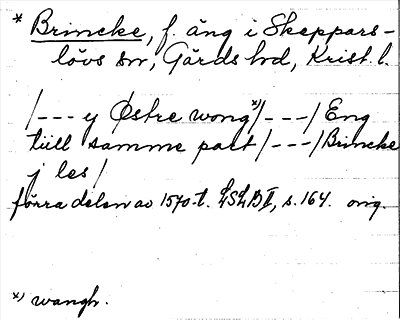 * Brincke, f. äng i Skeppars-
lövs sn, Gärds hd, Krist. l.
/--- y Østre wong*)/---/ Eng
tiill samme part /---/ Brincke
j les /
förra delen av 1570-t. LSLB II, s. 164. orig.
*) wangh.